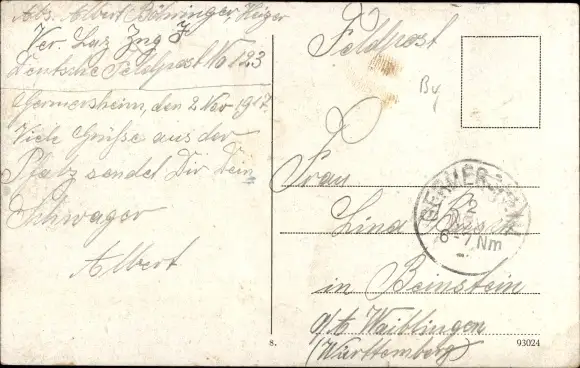 Abs. Albert Böhringer, Krieger
Ver. Laz Zug J
Deutsche Feldpost No 123
Germersheim, den 2 Nov 1917.
Viele Grüsse aus der
Pfalz sendet Dir Dein
Schwager
Albert
Feldpost
By
Frau
Lina
in Beinstein
o/A Waiblingen
(Württemberg)
GERMERSHEIM
2
6-7 Nm
8.
93024